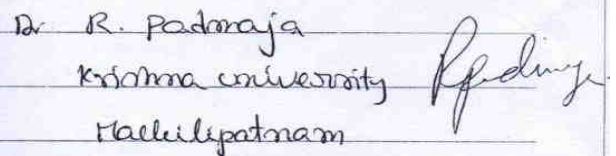 Dr R. Padmaja
Krishna university
Machilipatnam